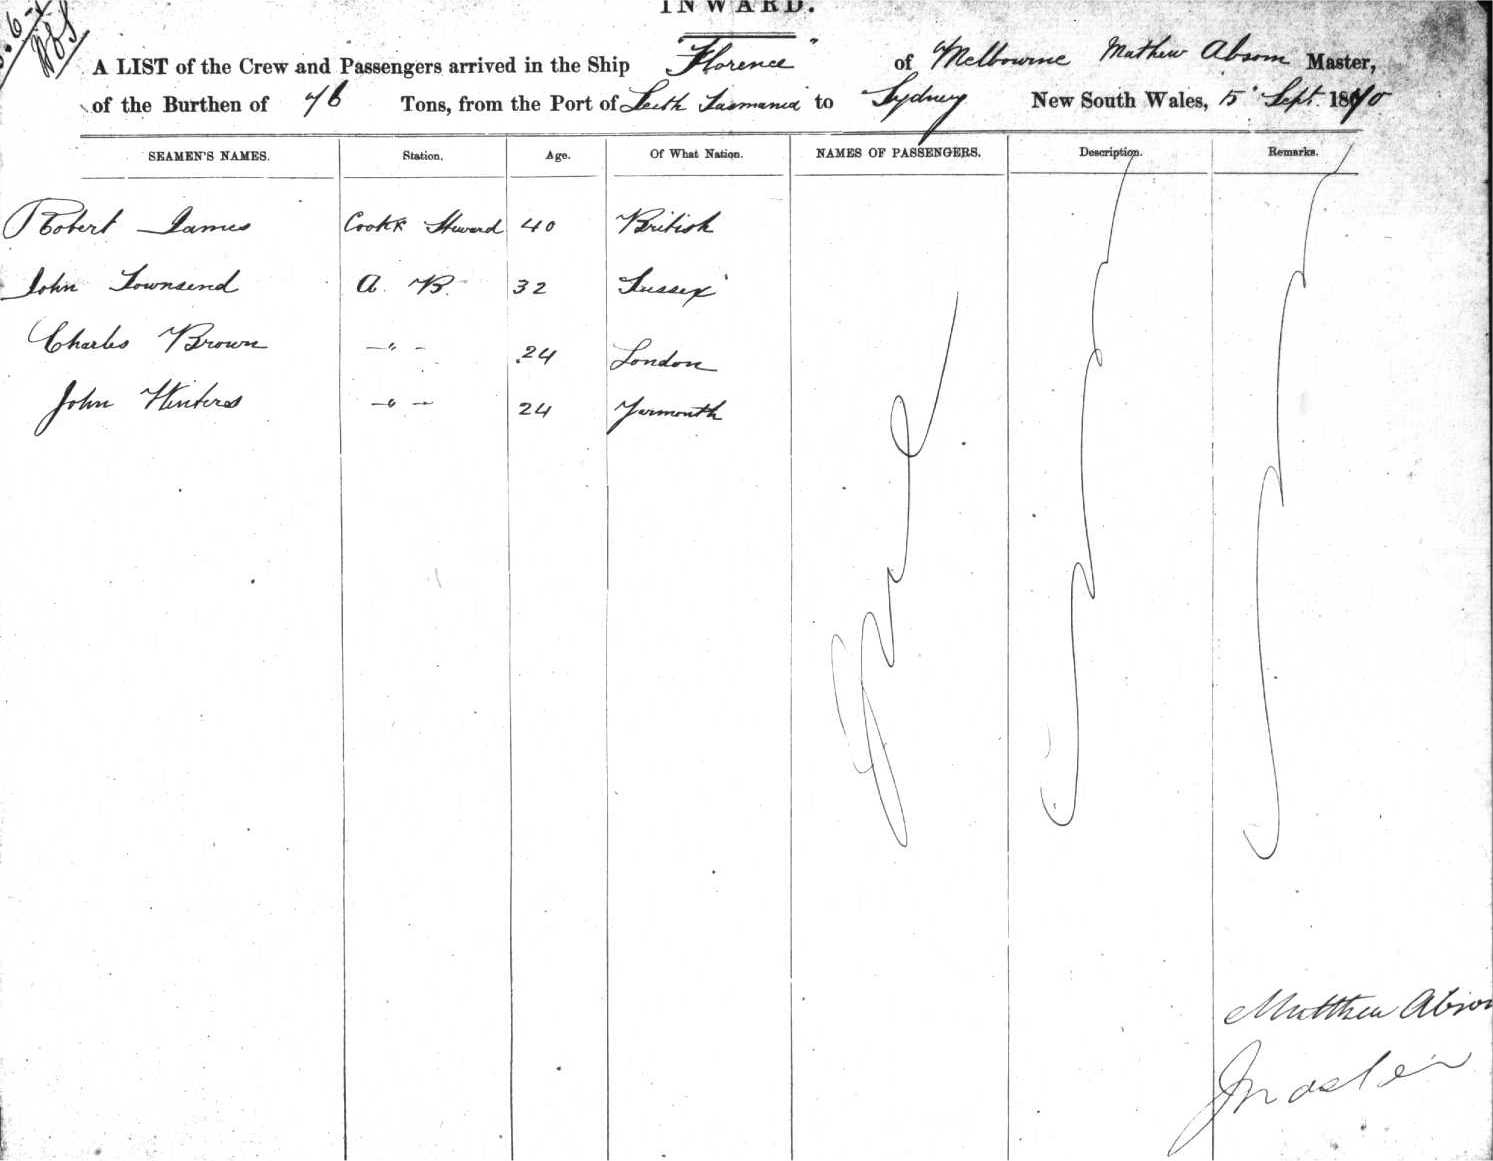 INWARD.
A LIST of the Crew and Passengers arrived in the Ship "Florence" of Melbourne Mathew Absom Master,
of the Burthen of 76 Tons, from the Port of Leith Tasmania to Sydney New South Wales, 15 Sept. 1870
SEAMEN'S NAMES. Station. Age. Of What Nation. NAMES OF PASSENGERS. Description. Remarks.
Robert James Cook & Steward 40 British
John Townsend A.B. 32 Sussex
Charles Brown —"— 24 London
John Winters —"— 24 Yarmouth
Matthew Absom
Master